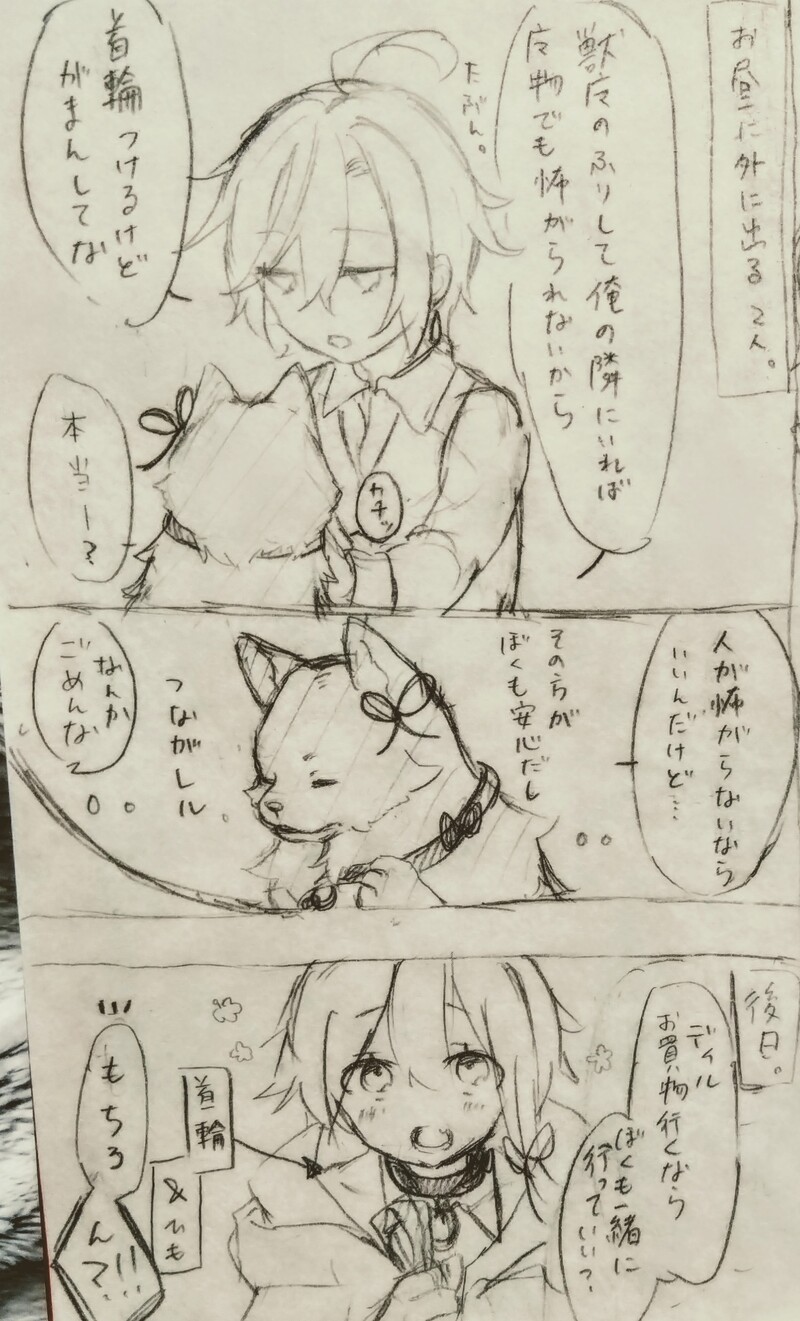 お昼に外に出る2人。
獣皮のふりして俺の隣にいれば
魔物でも怖がられないから
たぶん。
首輪つけるけど
がまんしてな
カチッ
本当ー?
人が怖がらないなら
いいんだけど…
その方が
ぼくも安心だし
つながレル
なんか
ごめんな
後日。
ディル
お買い物行くなら
ぼくも一緒に
行っていい?
首輪
&ひも
もちろ
んで!!